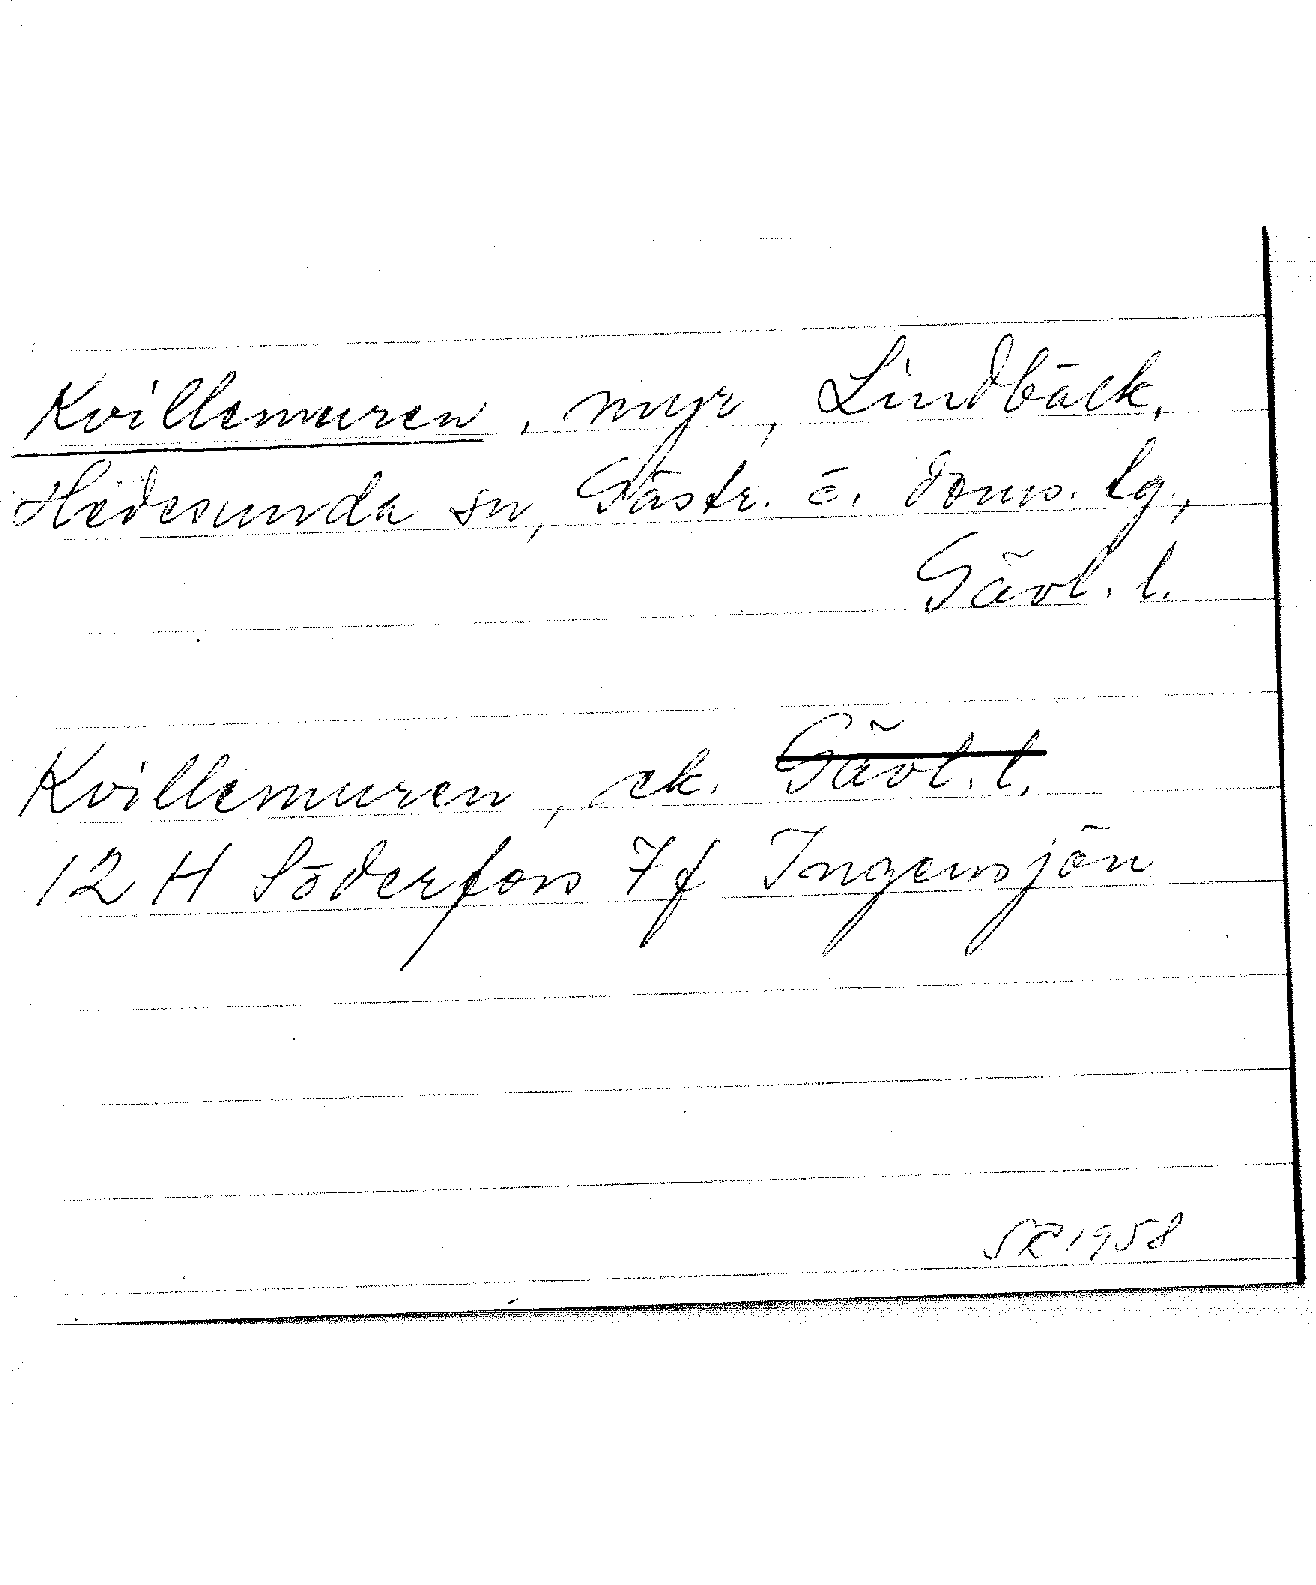 Kvillemuren, myr, Lindbäck,
Hedesunda sn, Gästr. ö. doms. lg.,
Gävl. l.
Kvillemuren, ek. Gävl. l.
12 H Söderfors 7f Ingensjön
SR 1958